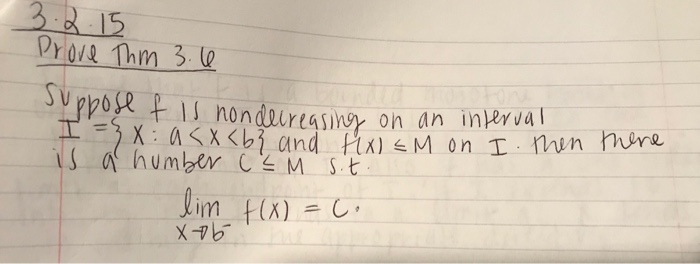 3.2.15
Prove Thm 3.6
Suppose f is nondecreasing on an interval
I = {x: a<x<b} and f(x) ≤ M on I. Then there
is a number C ≤ M s.t.
lim f(x) = C.
x→b⁻